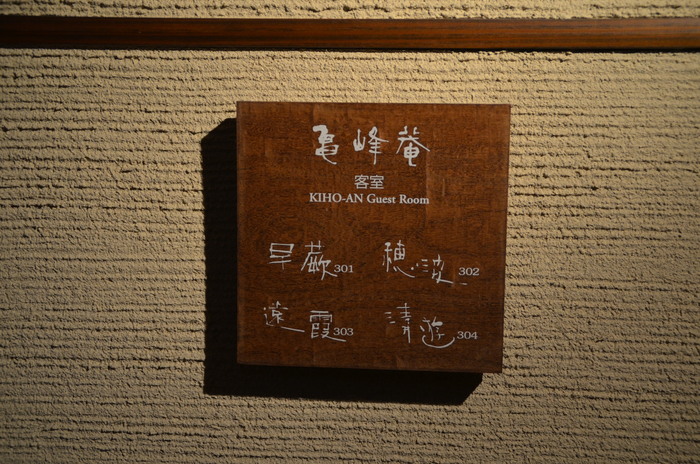 亀峰菴
客室
KIHO-AN Guest Room
早蕨301 穂波302
遠霞303 清遊304